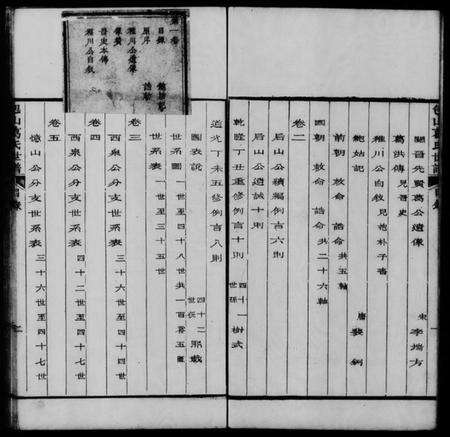 第一卷
目錄
原序
像贊
稚川公遺像
晉史本傳
稚川公自敘
關晉先賢葛公遺像
葛洪傳 見晉史
稚川公自敘 見抱朴子書
鮑姑記
宋 李
唐 裴鉶
前朝 敕命 誥命共五軸
國朝 敕命 誥命共二十六軸
卷二
后山公續編例言六則
后山公遺誡十則
乾隆丁丑重修例言十則
四十一世孫 樹式
道光丁未五修例言八則
四十二世孫
圖表說
世系圖 一世至四十八世共一百零五圖
世系表 一世至三十五世
卷三
西泉公分支世系表 三十六世至四十一世
卷四
西泉公分支世系表 四十二世至四十七世
卷五
憶山公分支世系表 三十六世至四十七世
包山葛氏世譜
目錄
包山葛氏世譜
目錄